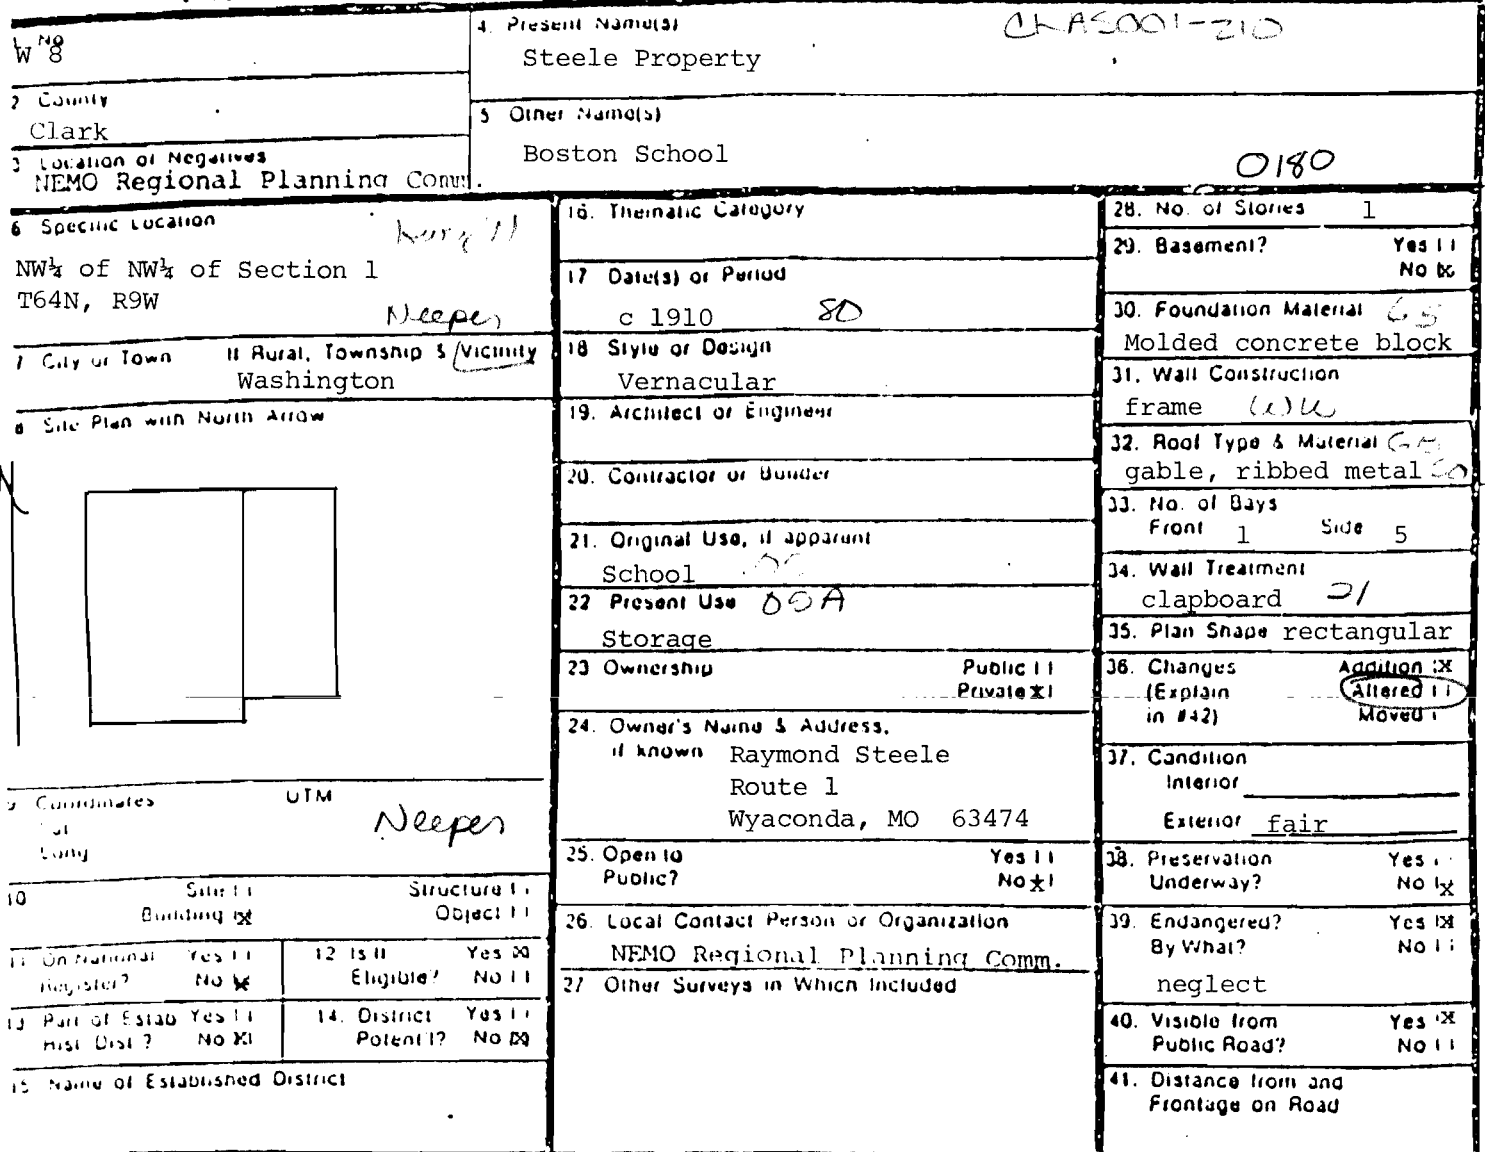 No
W 8
4. Present Name(s)
Steele Property
CLAS001-210
2 County
Clark
5 Other Name(s)
Boston School
0180
3 Location of Negatives
NEMO Regional Planning Comm.
6 Specific Location
NW¼ of NW¼ of Section 1
T64N, R9W
Neeper
7 City or Town If Rural, Township & Vicinity
Washington
8 Site Plan with North Arrow
N
9 Coordinates UTM
Lat
Long
Neeper
10 Site Structure
Building x Object
11 On National Yes
Register? No x
12 Is It Yes x
Eligible? No
13 Part of Estab Yes
Hist Dist? No x
14. District Yes
Potent'l? No x
15 Name of Established District
16. Thematic Category
17 Date(s) or Period
c 1910 80
18 Style or Design
Vernacular
19. Architect or Engineer
20. Contractor or Builder
21. Original Use, if apparent
School
22 Present Use 05A
Storage
23 Ownership Public
Private x
24. Owner's Name & Address,
if known Raymond Steele
Route 1
Wyaconda, MO 63474
25. Open to Yes
Public? No x
26. Local Contact Person or Organization
NEMO Regional Planning Comm.
27 Other Surveys in Which Included
28. No. of Stories 1
29. Basement? Yes
No x
30. Foundation Material 65
Molded concrete block
31. Wall Construction
frame
32. Roof Type & Material
gable, ribbed metal
33. No. of Bays
Front 1 Side 5
34. Wall Treatment
clapboard 21
35. Plan Shape rectangular
36. Changes Addition x
(Explain Altered
in #42) Moved
37. Condition
Interior
Exterior fair
38. Preservation Yes
Underway? No x
39. Endangered? Yes x
By What? No
neglect
40. Visible from Yes x
Public Road? No
41. Distance from and
Frontage on Road